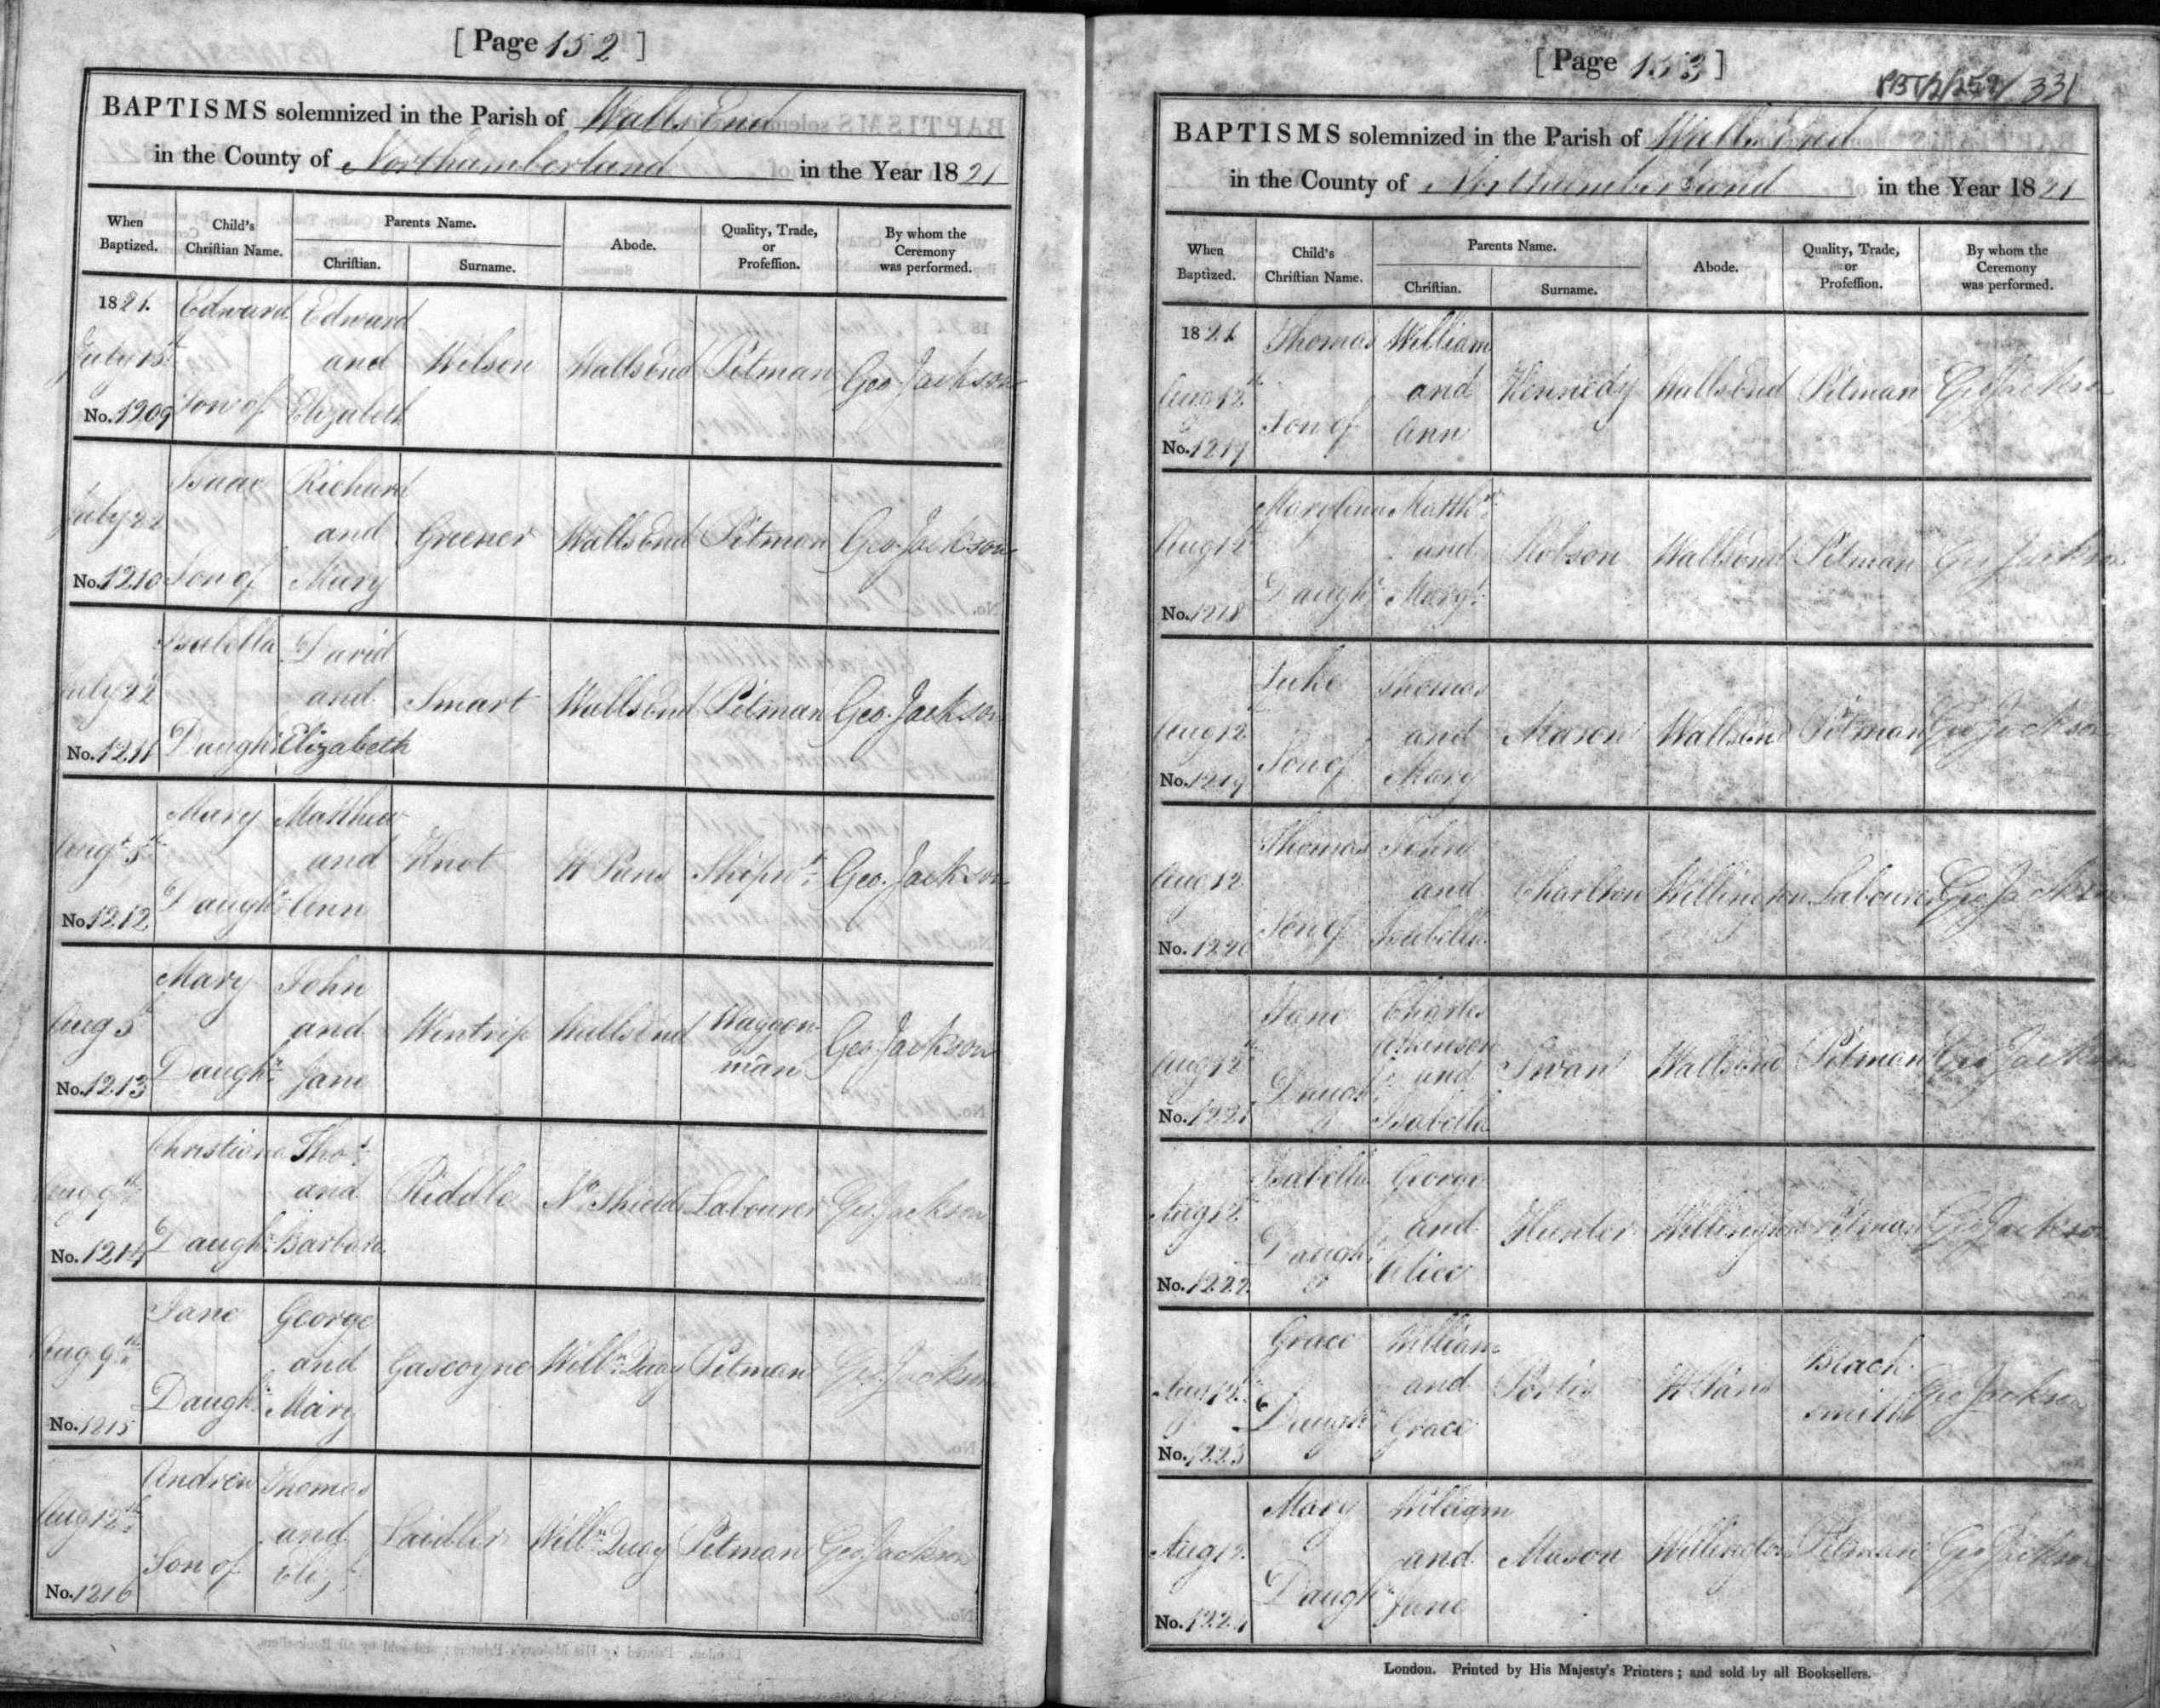 [ Page 152 ]
BAPTISMS solemnized in the Parish of Walls End
in the County of Northumberland in the Year 1821
When Baptized.
Child's Christian Name.
Parents Name.
Christian.
Surname.
Abode.
Quality, Trade, or Profession.
By whom the Ceremony was performed.
1821.
July 15th
No. 1209
Edward
Son of
Edward
and
Elizabeth
Wilson
Wallsend
Pitman
Geo Jackson
July 22
No. 1210
Isaac
Son of
Richard
and
Mary
Greener
Walls End
Pitman
Geo. Jackson
July 22
No. 1211
Isabella
Daughr
David
and
Elizabeth
Smart
Walls End
Pitman
Geo. Jackson
Augt 5th
No. 1212
Mary
Daughr
Matthew
and
Ann
Knot
W Pans
Shipwt
Geo. Jackson
Aug 5th
No. 1213
Mary
Daughr
John
and
Jane
Wintrip
Wallsend
Waggon
man
Geo. Jackson
Aug 9th
No. 1214
Christiana
Daughr
Thos
and
Barbara
Riddle
No Shields
Labourer
Geo. Jackson
Aug 9th
No. 1215
Jane
Daughr
George
and
Mary
Gascoyne
Willn Quay
Pitman
Geo. Jackson
Aug 12th
No. 1216
Andrew
Son of
Thomas
and
Elizh
Laidler
Willn Quay
Pitman
Geo Jackson
[ Page 153 ]
PBT/2/252/331
BAPTISMS solemnized in the Parish of Walls End
in the County of Northumberland in the Year 1821
When Baptized.
Child's Christian Name.
Parents Name.
Christian.
Surname.
Abode.
Quality, Trade, or Profession.
By whom the Ceremony was performed.
1821
Aug 12th
No. 1217
Thomas
Son of
William
and
Ann
Kennedy
Wallsend
Pitman
Geo Jackson
Aug 12th
No. 1218
Daughr
Matthw
and
Margt
Robson
Wallsend
Pitman
Geo Jackson
Aug 12
No. 1219
Luke
Son of
Thomas
and
Mary
Mason
Wallsend
Pitman
Geo Jackson
Aug 12
No. 1220
Thomas
Son of
John
and
Isabella
Charlton
Willington
Labourer
Geo Jackson
Aug 12th
No. 1221
Daughr
Charles
Atkinson
and
Isabella
Swan
Wallsend
Pitman
Geo Jackson
Aug 12
No. 1222
Isabella
Daughr
George
and
Alice
Hunter
Willington
Pitman
Geo Jackson
Aug 12
No. 1223
Grace
Daughr
William
and
Grace
Portis
W Pans
Black
smith
Geo Jackson
Aug 12
No. 1224
Mary
Daughr
William
and
Jane
Mason
Willington
Pitman
Geo Jackson
London. Printed by His Majesty's Printers; and sold by all Booksellers.